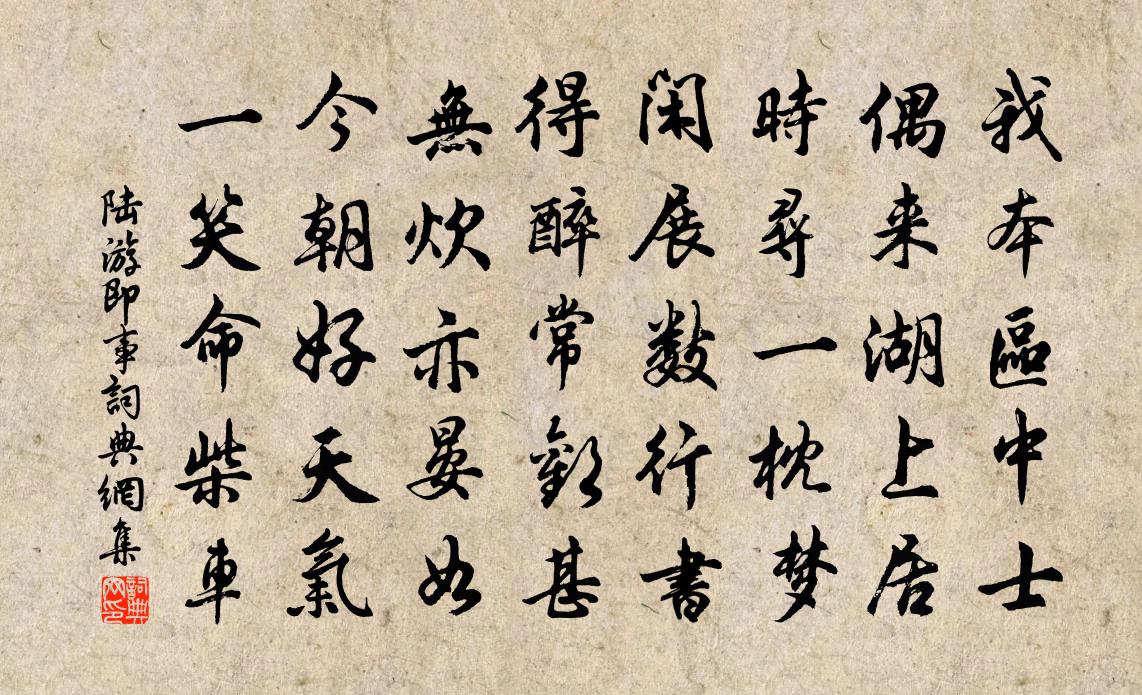 我本區中士
偶来湖上居
時尋一枕梦
閑展數行書
得醉常歡甚
無炊亦晏如
今朝好天氣
一笑命柴車
陸游即事詞典網集
詞典
网印